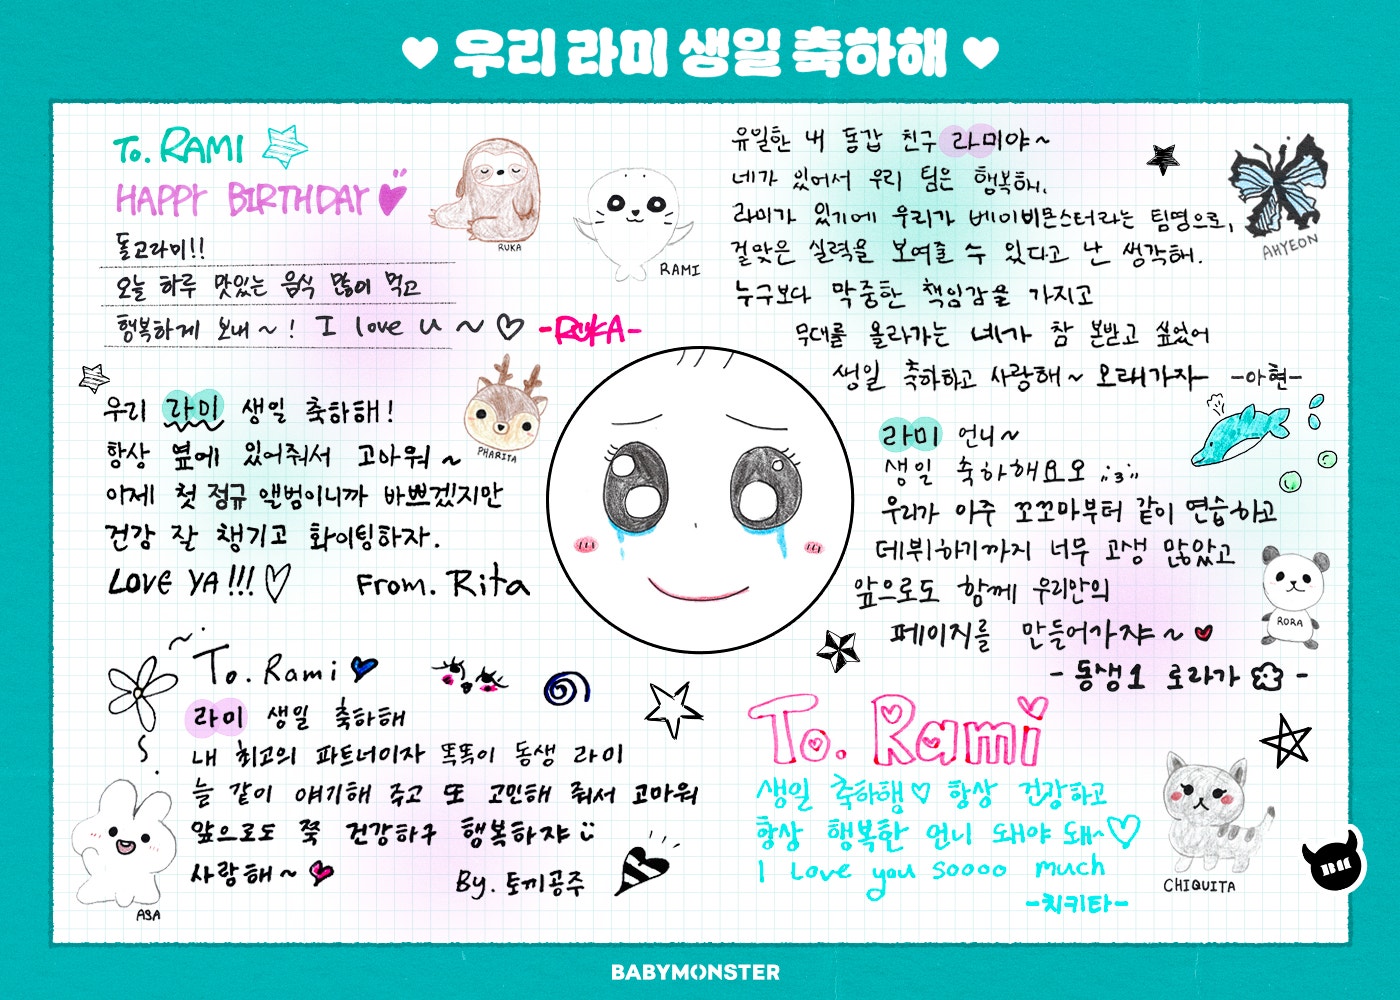 우리 라미 생일 축하해
To. RAMI
HAPPY BIRTHDAY
돌고라미!!
오늘 하루 맛있는 음식 많이 먹고
행복하게 보내 ~ ! I love u ~ ♡ -RUKA-
RUKA
RAMI
우리 라미 생일 축하해!
항상 옆에 있어줘서 고마워 ~
이제 첫 정규 앨범이니까 바쁘겠지만
건강 잘 챙기고 화이팅하자.
LOVE YA!!! ♡ From. Rita
PHARITA
To. Rami
라미 생일 축하해
내 최고의 파트너이자 똑똑이 동생 라미
늘 같이 얘기해 주고 또 고민해 줘서 고마워
앞으로도 쭉 건강하구 행복하쟈
사랑해 ~
By. 토끼공주
ASA
유일한 내 동갑 친구 라미야 ~
네가 있어서 우리 팀은 행복해.
라미가 있기에 우리가 베이비몬스터라는 팀명으로,
걸맞은 실력을 보여줄 수 있다고 난 생각해.
누구보다 막중한 책임감을 가지고
무대를 올라가는 네가 참 본받고 싶었어
생일 축하하고 사랑해 ~ 오래가자 -아현-
AHYEON
라미 언니 ~
생일 축하해요오
우리가 아주 꼬꼬마부터 같이 연습하고
데뷔하기까지 너무 고생 많았고
앞으로도 함께 우리만의
페이지를 만들어가쟈 ~
- 동생1 로라가 -
RORA
To. Rami
생일 축하햄 ♡ 항상 건강하고
항상 행복한 언니 돼야 돼~ ♡
I love you soooo much
-치키타-
CHIQUITA
BABYMONSTER